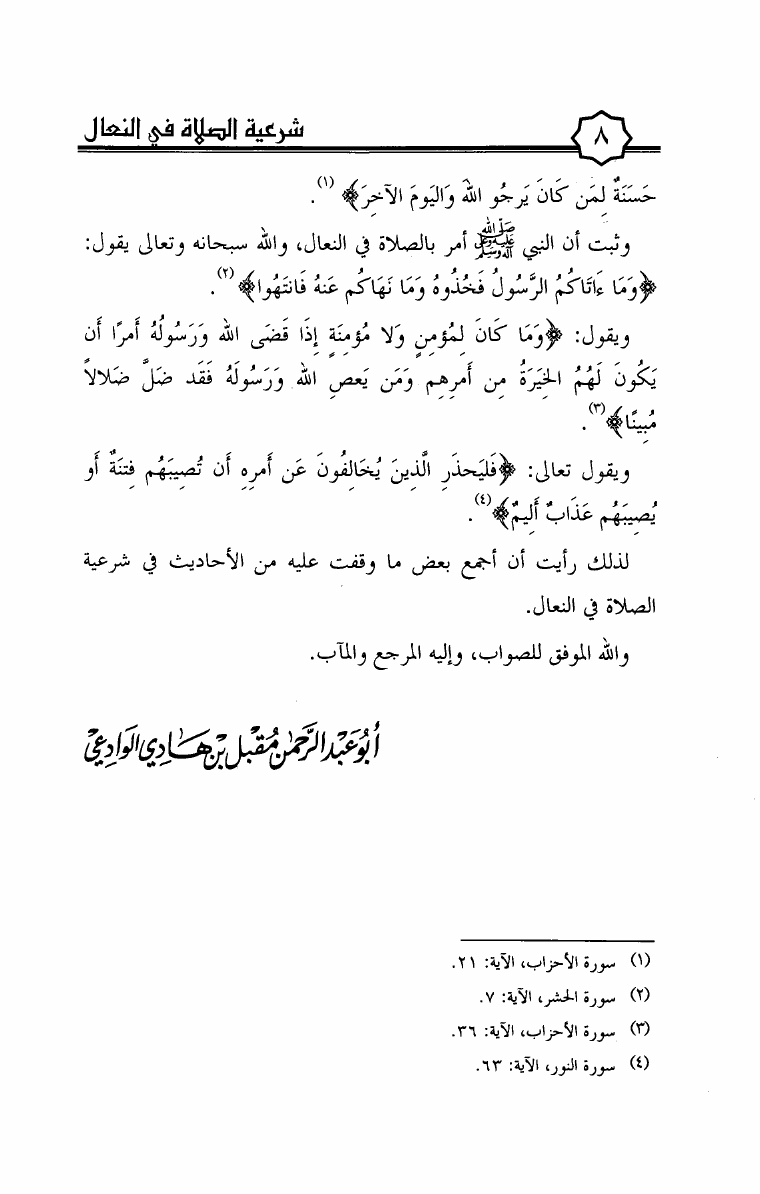 ٨
شرعية الصلاة في النعال
حَسَنَةٌ لِمَن كَانَ يَرجُو اللهَ وَاليَومَ الآخِرَ﴾(١).
وثبت أن النبي ﷺ أمر بالصلاة في النعال، والله سبحانه وتعالى يقول:
﴿وَمَا ءَاتَاكُمُ الرَّسُولُ فَخُذُوهُ وَمَا نَهَاكُم عَنهُ فَانتَهُوا﴾(٢).
ويقول: ﴿وَمَا كَانَ لِمُؤمِنٍ وَلا مُؤمِنَةٍ إِذَا قَضَى اللهُ وَرَسُولُهُ أَمرًا أَن
يَكُونَ لَهُمُ الخِيَرَةُ مِن أَمرِهِم وَمَن يَعصِ اللهَ وَرَسُولَهُ فَقَد ضَلَّ ضَلالاً
مُبِينًا﴾(٣).
ويقول تعالى: ﴿فَليَحذَرِ الَّذِينَ يُخَالِفُونَ عَن أَمرِهِ أَن تُصِيبَهُم فِتنَةٌ أَو
يُصِيبَهُم عَذَابٌ أَلِيمٌ﴾(٤).
لذلك رأيت أن أجمع بعض ما وقفت عليه من الأحاديث في شرعية
الصلاة في النعال.
والله الموفق للصواب، وإليه المرجع والمآب.
أَبُو عَبْدِ الرَّحْمٰنِ مُقْبِل بْن هَادِي الْوَادِعِيّ
(١) سورة الأحزاب، الآية: ٢١.
(٢) سورة الحشر، الآية: ٧.
(٣) سورة الأحزاب، الآية: ٣٦.
(٤) سورة النور، الآية: ٦٣.